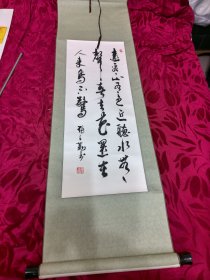 遠看山有色近聽水無
聲春去花還在
人来鳥不驚